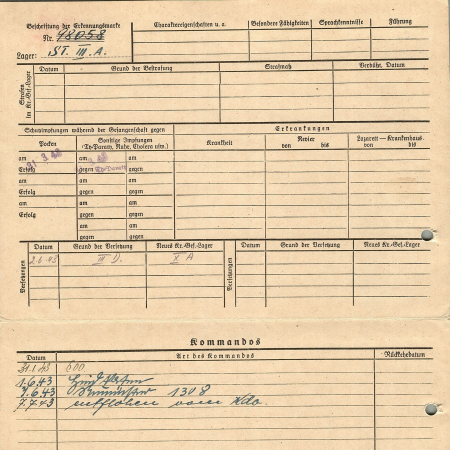 Beschriftung der Erkennungsmarke
Nr. 98058
Lager: ST. III. A.
Charaktereigenschaften u. a.
Besondere Fähigkeiten
Sprachkenntnisse
Führung
Strafen im Kr.-Gef.-Lager
Datum
Grund der Bestrafung
Strafmaß
Verbüßt, Datum
Schutzimpfungen während der Gefangenschaft gegen
Erkrankungen
Pocken
Sonstige Impfungen
(Ty-Paraty, Ruhr, Cholera usw.)
Krankheit
Revier
von bis
Lazarett — Krankenhaus
von bis
am am am
Erfolg gegen Ty-Paraty gegen
am am am
Erfolg gegen gegen
am am am
Erfolg gegen gegen
am am
gegen gegen
Versetzungen
Datum
Grund der Versetzung
Neues Kr.-Gef.-Lager
2.6.43 III D. X A
Versetzungen
Datum
Grund der Versetzung
Neues Kr.-Gef.-Lager
Kommandos
Datum
Art des Kommandos
Rückkehrdatum
600
1.6.43
7.6.43 Neumünster 1308
7.7.43 entflohen vom Kdo.